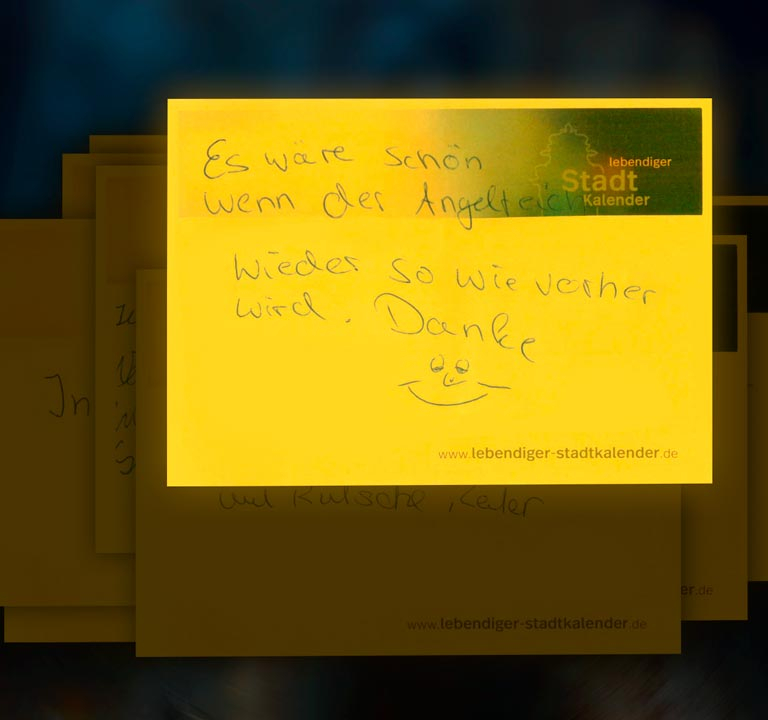 Es wäre schön
lebendiger
Stadt
Kalender
wenn der Angelteich
wieder so wie vorher
wird. Danke
www.lebendiger-stadtkalender.de
In
und Rutsche,
er.de
www.lebendiger-stadtkalender.de